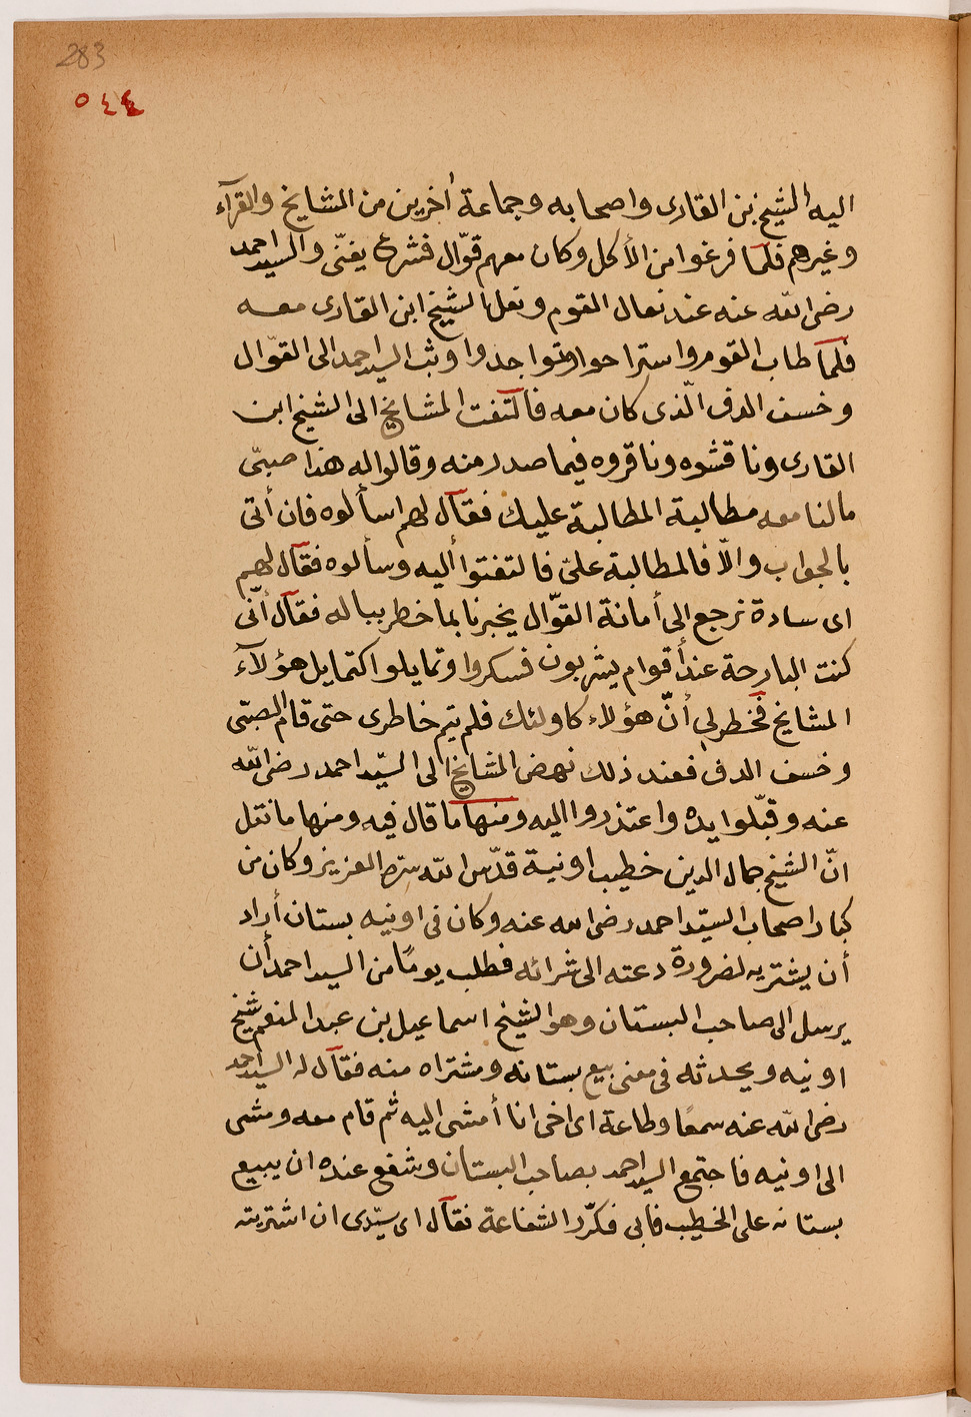 283
٥٤٤
اليه الشيخ بن القارى واصحابه وجماعة أخرين من المشايخ والقرآء
وغيرهم فلما فرغوا من الأكل وكان معهم قوّال فشرع يغنّى والسيد احمد
رضى الله عنه عند نعال القوم ونعل الشيخ ابن القارى معه
فلمآ طاب القوم واستراحوا وتواجدوا وثب السيد احمد الى القوّال
وخسف الدف الّذى كان معه فالتفت المشايخ الى الشيخ ابن
القارى وناقشوه وناقروه فيما صدر منه وقالوا له هذا صبىّ
مالنا معه مطالبة المطالبة عليك فقآل لهم اسألوه فان أتى
بالجواب والّا فالمطالبة علىّ فالتفتوا أليه وسألوه فقآل لهم
اى سادة نرجع الى أمانة القوّال يخبرنا بما خطر بباله فقآل أنّى
كنت البارحة عند أقوام يشربون فسكروا وتمايلوا كتمايل هؤلآء
المشايخ فخطر لي أنّ هؤلاء كاولئك فلم يتم خاطرى حتى قام الصبىّ
وخسف الدف فعند ذلك نهض المشايخ الى السيّد احمد رضى الله
عنه وقبّلوا يده واعتذروا اليه ومنها ما قال فيه ومنها ما نقل
انّ الشيخ جمال الدين خطيب اونية قدّس الله سره العزيز وكان من
كبار اصحاب السيّد احمد رضى الله عنه وكان فى اونيه بستان أراد
أن يشتريه لضرورة دعته الى شرائه فطلب يومًا من السيد احمد أن
يرسل الى صاحب البستان وهو الشيخ اسماعيل بن عبد المنعم شيخ
اونيه ويحدثه فى معنى بيع بستانه ومشتراه منه فقآل له السيد احمد
رضى الله عنه سمعًا وطاعة اى اخى انا أمشى اليه ثم قام معه ومشى
الى اونيه فاجتمع السيد احمد بصاحب البستان وشفع عنده ان يبيع
بستانه على الخطيب فابى فكرّر الشفاعة فقآل اى سيّدى ان اشتريته